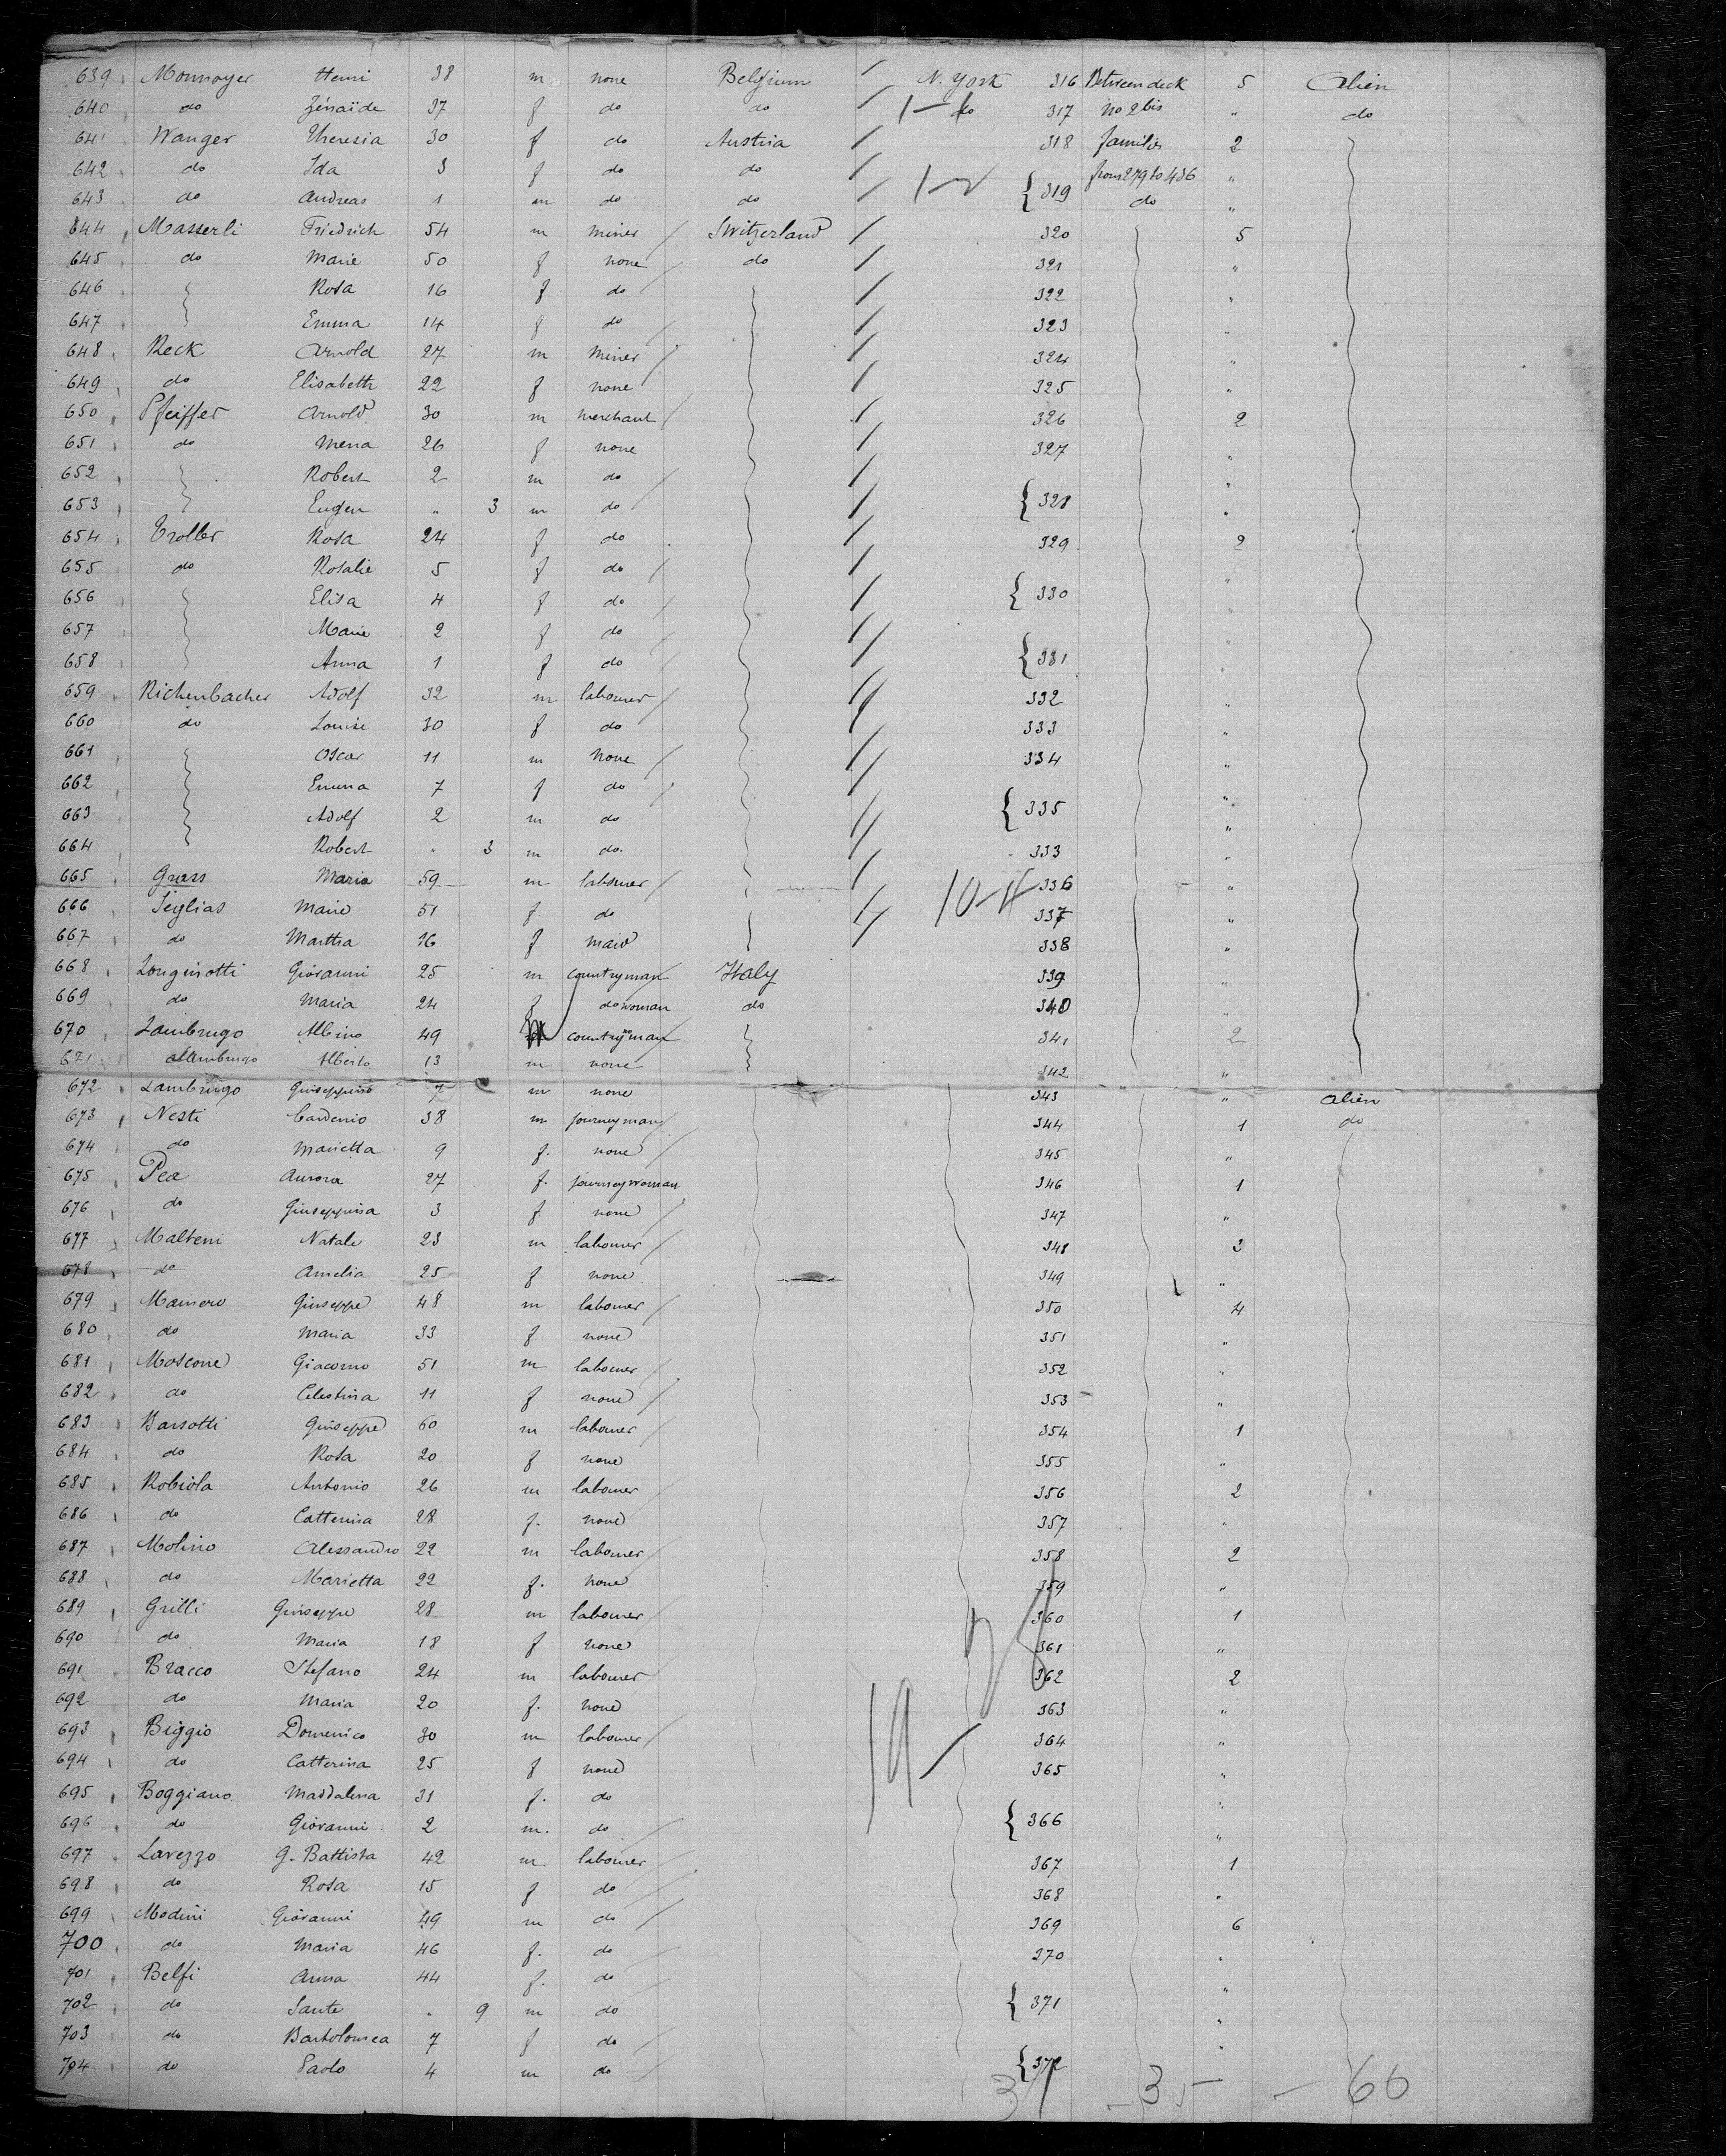 639 Monnoyer Henri 38 m none Belgium / N. York 316 Between deck 5 Alien
640 do Zénaïde 37 f do do / 1 - do 317 No 2 bis " do
641 Wanger Theresia 30 f do Austria / 318 families 2
642 do Ida 3 f do do / from 279 to 436 "
643 do Andreas 1 m do do / { 319 do "
644 Masserli Friedrich 54 m miner / Switzerland / 320 5
645 do Marie 50 f none / do / 321 "
646 Rosa 16 f do / / 322 "
647 Emma 14 f do / / 323 "
648 Reck Arnold 27 m miner / / 324 "
649 do Elisabeth 22 f none / 325 "
650 Pfeiffer Arnold 30 m merchant / / 326 2
651 do Mena 26 f none / 327 "
652 Robert 2 m do / / "
653 Eugen " 3 m do / / { 328 "
654 Troller Rosa 24 f do / 329 2
655 do Rosalie 5 f do / / "
656 Elisa 4 f do / / { 330 "
657 Marie 2 f do / // "
658 Anna 1 f do / // { 331 "
659 Richenbacher Adolf 32 m labourer / // 332 "
660 do Louise 30 f do / 333 "
661 Oscar 11 m none / // 334 "
662 Emma 7 f do / // "
663 Adolf 2 m do // { 335 "
664 Robert . 3 m do. // 333 "
665 Grass Maria 59 m labourer / / 336 "
666 Jeglias Marie 51 f. do // 10-11 337 "
667 do Martha 16 f maid / 338 "
668 Longinotti Giovanni 25 m countryman Italy 339 "
669 do Maria 24 f do woman do 340 "
670 Lambrugo Albino 49 m countryman 341 2
671 Lambrugo Alberto 13 m none 342 "
672 Lambrugo Guiseppino 7 m none 343 " alien
673 Nesti Cardenio 38 m journeyman / 344 1 do
674 do Marietta 9 f. none / 345 "
675 Pea Aurora 27 f. journeywoman 346 1
676 do Giuseppina 3 f none / 347 "
677 Malteni Natale 23 m labourer / 348 3
678 do Amelia 25 f none 349 "
679 Mainero Giuseppe 48 m labourer / 350 4
680 do Maria 33 f none 351 "
681 Moscone Giacomo 51 m labourer / 352 "
682 do Celestina 11 f none / 353 "
683 Barsotti Guiseppe 60 m labourer / 354 1
684 do Rosa 20 f none 355 "
685 Robiola Antonio 26 m labourer / 356 2
686 do Catterina 28 f. none 357 "
687 Molino Alessandro 22 m labourer / 358 2
688 do Marietta 22 f. none 359 "
689 Grilli Guiseppe 28 m labourer / 360 1
690 do Maria 18 f none 361 "
691 Bracco Stefano 24 m labourer / 362 2
692 do Maria 20 f. none 363 "
693 Biggio Domenico 30 m labourer / 19 - 364 "
694 do Catterina 25 f none 365 "
695 Boggiano Maddalena 31 f. do "
696 do Giovanni 2 m. do / { 366 "
697 Lavezzo G. Battista 42 m labourer / 367 1
698 do Rosa 15 f do / 368 "
699 Modini Giovanni 49 m do / 369 6
700 do Maria 46 f. do 370 "
701 Belfi Anna 44 f. do "
702 do Sante . 9 m do { 371 "
703 do Bartolomea 7 f do / "
704 do Paolo 4 m do / { 372
31 - 35 - 66